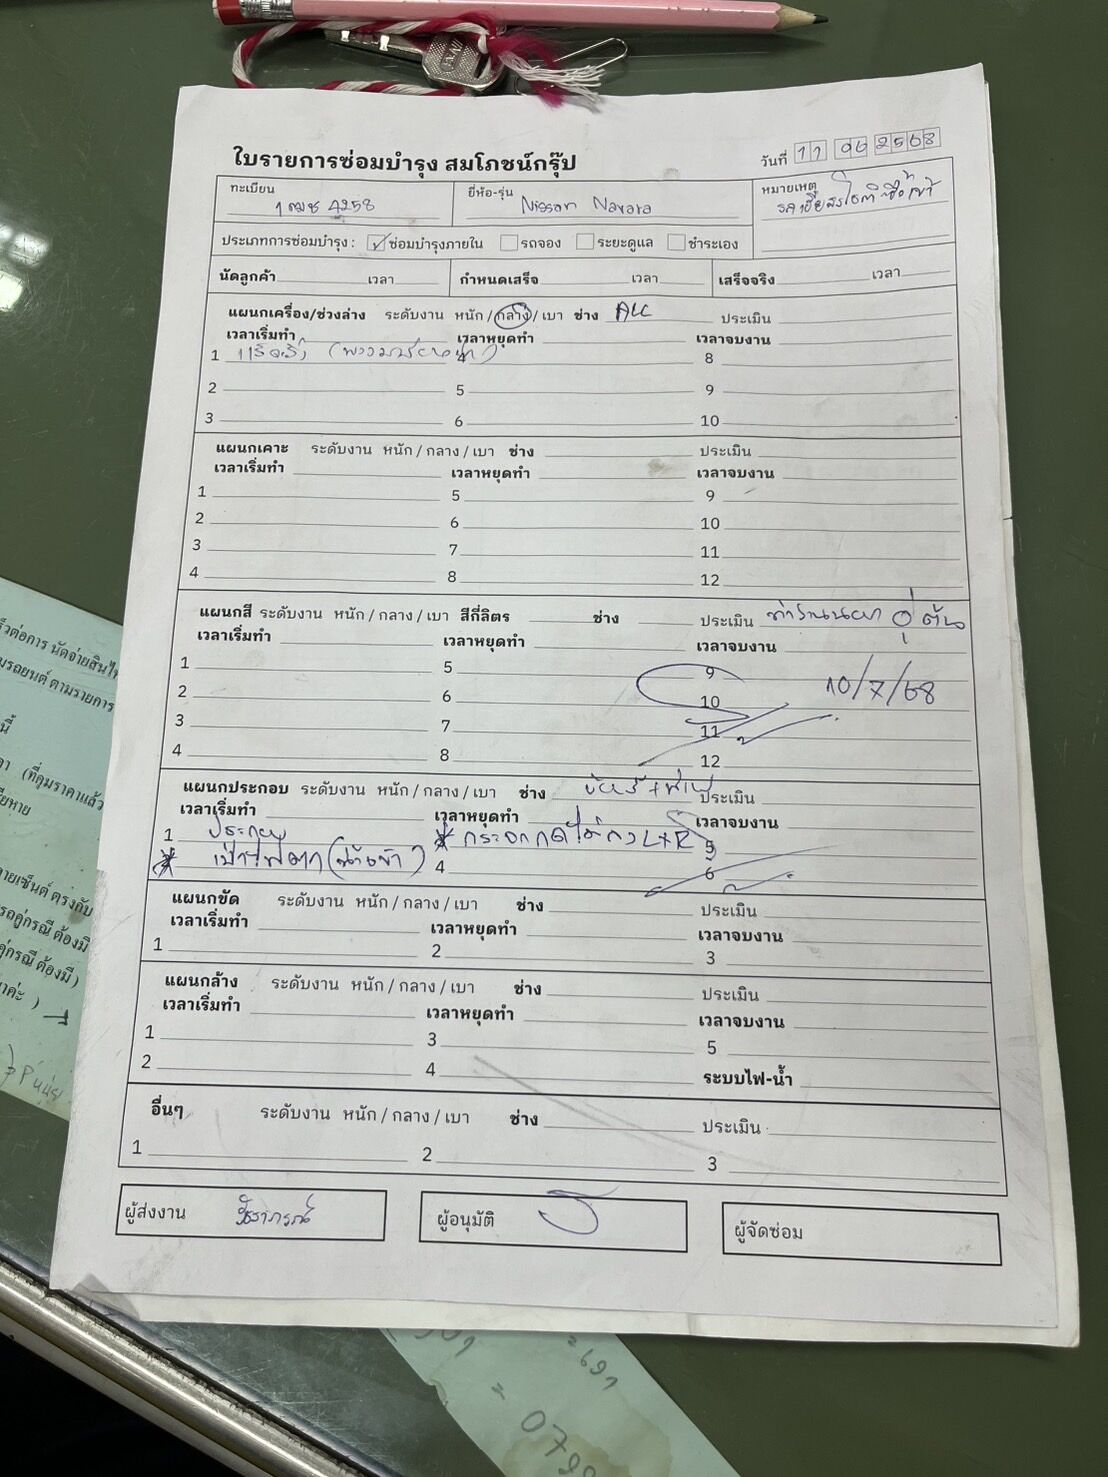 ใบรายการซ่อมบำรุง สมโภชน์กรุ๊ป
วันที่ 11 06 2568
ทะเบียน 1ฒช 4258
ยี่ห้อ-รุ่น Nissan Navara
หมายเหตุ
ประเภทการซ่อมบำรุง : ซ่อมบำรุงภายใน รถจอง ระยะดูแล ชำระเอง
นัดลูกค้า เวลา กำหนดเสร็จ เวลา เสร็จจริง เวลา
แผนกเครื่อง/ช่วงล่าง ระดับงาน หนัก / กลาง / เบา ช่าง ประเมิน
เวลาเริ่มทำ เวลาหยุดทำ เวลาจบงาน
1 4 8
2 5 9
3 6 10
แผนกเคาะ ระดับงาน หนัก / กลาง / เบา ช่าง ประเมิน
เวลาเริ่มทำ เวลาหยุดทำ เวลาจบงาน
1 5 9
2 6 10
3 7 11
4 8 12
แผนกสี ระดับงาน หนัก / กลาง / เบา สีกี่ลิตร ช่าง ประเมิน
เวลาเริ่มทำ เวลาหยุดทำ เวลาจบงาน
1 5 9
2 6 10 10/7/68
3 7 11
4 8 12
แผนกประกอบ ระดับงาน หนัก / กลาง / เบา ช่าง ประเมิน
เวลาเริ่มทำ เวลาหยุดทำ เวลาจบงาน
1 ประกอบ กระจกกดไม่ลง L+R 5
4 6
แผนกขัด ระดับงาน หนัก / กลาง / เบา ช่าง ประเมิน
เวลาเริ่มทำ เวลาหยุดทำ เวลาจบงาน
1 2 3
แผนกล้าง ระดับงาน หนัก / กลาง / เบา ช่าง ประเมิน
เวลาเริ่มทำ เวลาหยุดทำ เวลาจบงาน
1 3 5
2 4 ระบบไฟ-น้ำ
อื่นๆ ระดับงาน หนัก / กลาง / เบา ช่าง ประเมิน
1 2 3
ผู้ส่งงาน ผู้อนุมัติ ผู้จัดซ่อม